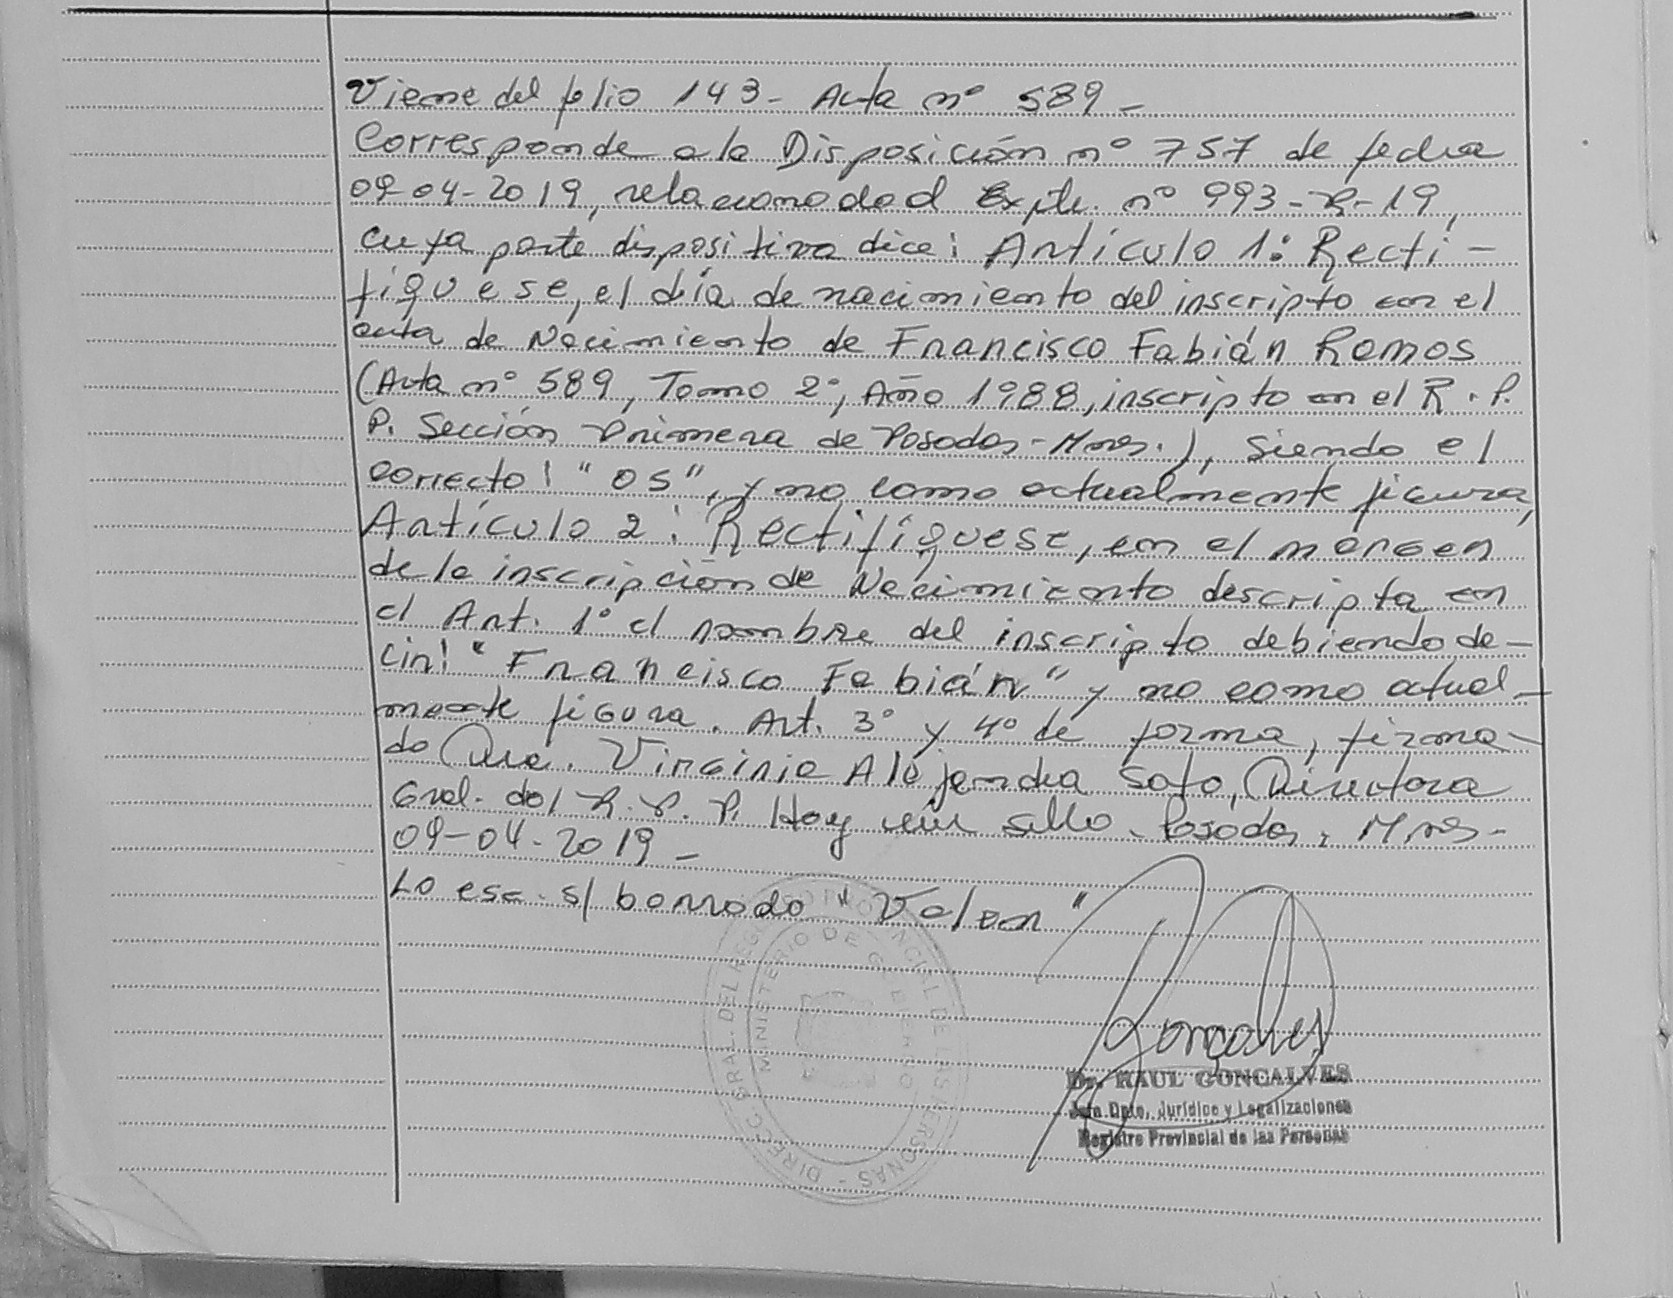 Viene del folio 143- Acta nº 589-
Corresponde a la Disposición nº 757 de fecha
09-04-2019, relacionado al Expte. nº 993-R-19,
cuya parte dispositiva dice: Artículo 1: Recti-
fíquese, el día de nacimiento del inscripto en el
acta de Nacimiento de Francisco Fabián Ramos
(Acta nº 589, Tomo 2º, Año 1988, inscripto en el R.P.
P. Sección Primera de Posadas-Mnes.), siendo el
correcto: "05", y no como actualmente figura,
Artículo 2: Rectifíquese, en el margen
de la inscripción de Nacimiento descripta en
el Art. 1º el nombre del inscripto debiendo de-
cir: "Francisco Fabián" y no como actual-
mente figura. Art. 3º y 4º de forma, firma-
do Dra. Virginia Alejandra Soto, Directora
Gral. del R.P.P. Hoy sello. Posadas, Mnes-
09-04-2019-
Lo esc. s/ borrado "Valen"
DIRECC. GRAL. DEL REGISTRO PROVINCIAL DE LAS PERSONAS -
MINISTERIO DE GOBIERNO
Gonçalves
Dr. RAUL GONCALVES
Jefe Dpto. Jurídico y Legalizaciones
Registro Provincial de las Personas